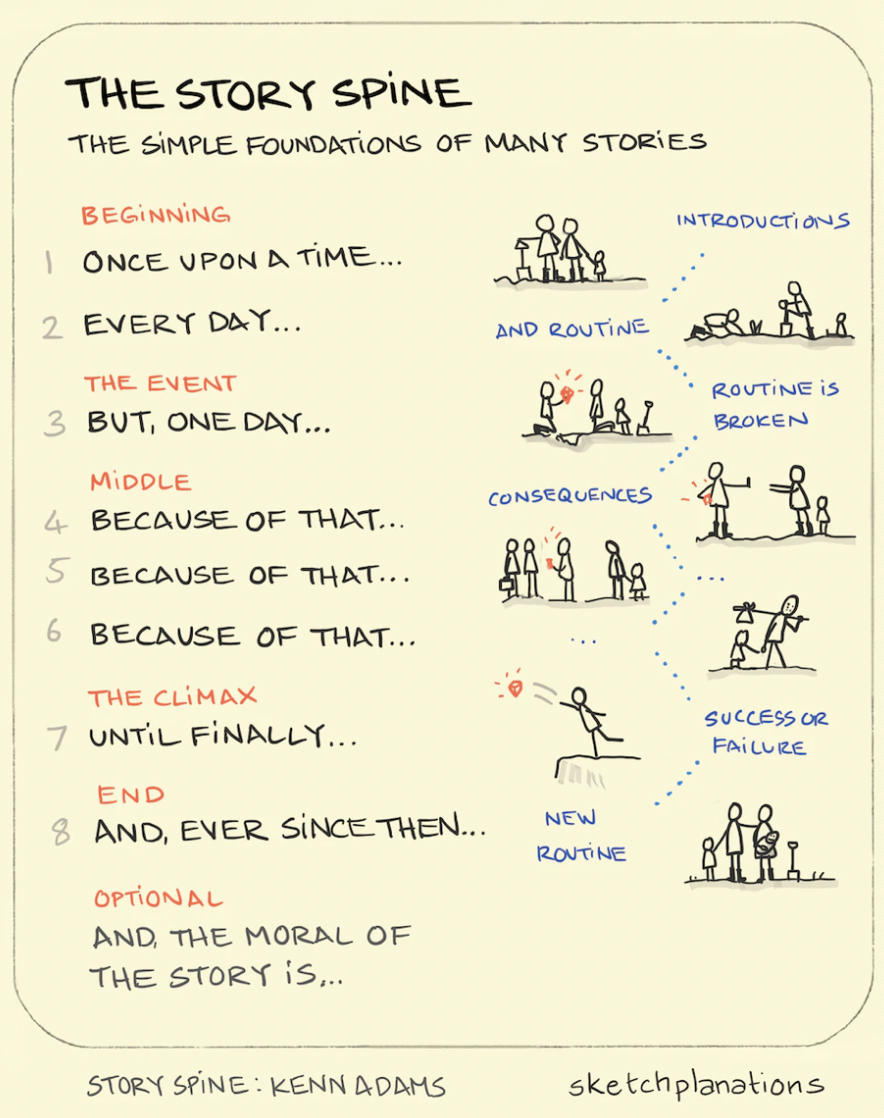 THE STORY SPINE
THE SIMPLE FOUNDATIONS OF MANY STORIES
BEGINNING
1 ONCE UPON A TIME...
2 EVERY DAY...
THE EVENT
3 BUT, ONE DAY...
MIDDLE
4 BECAUSE OF THAT...
5 BECAUSE OF THAT...
6 BECAUSE OF THAT...
THE CLIMAX
7 UNTIL FINALLY...
END
8 AND, EVER SINCE THEN...
OPTIONAL
AND, THE MORAL OF
THE STORY IS,..
INTRODUCTIONS
AND ROUTINE
ROUTINE IS
BROKEN
CONSEQUENCES
...
...
SUCCESS OR
FAILURE
NEW
ROUTINE
STORY SPINE: KENN ADAMS
sketchplanations